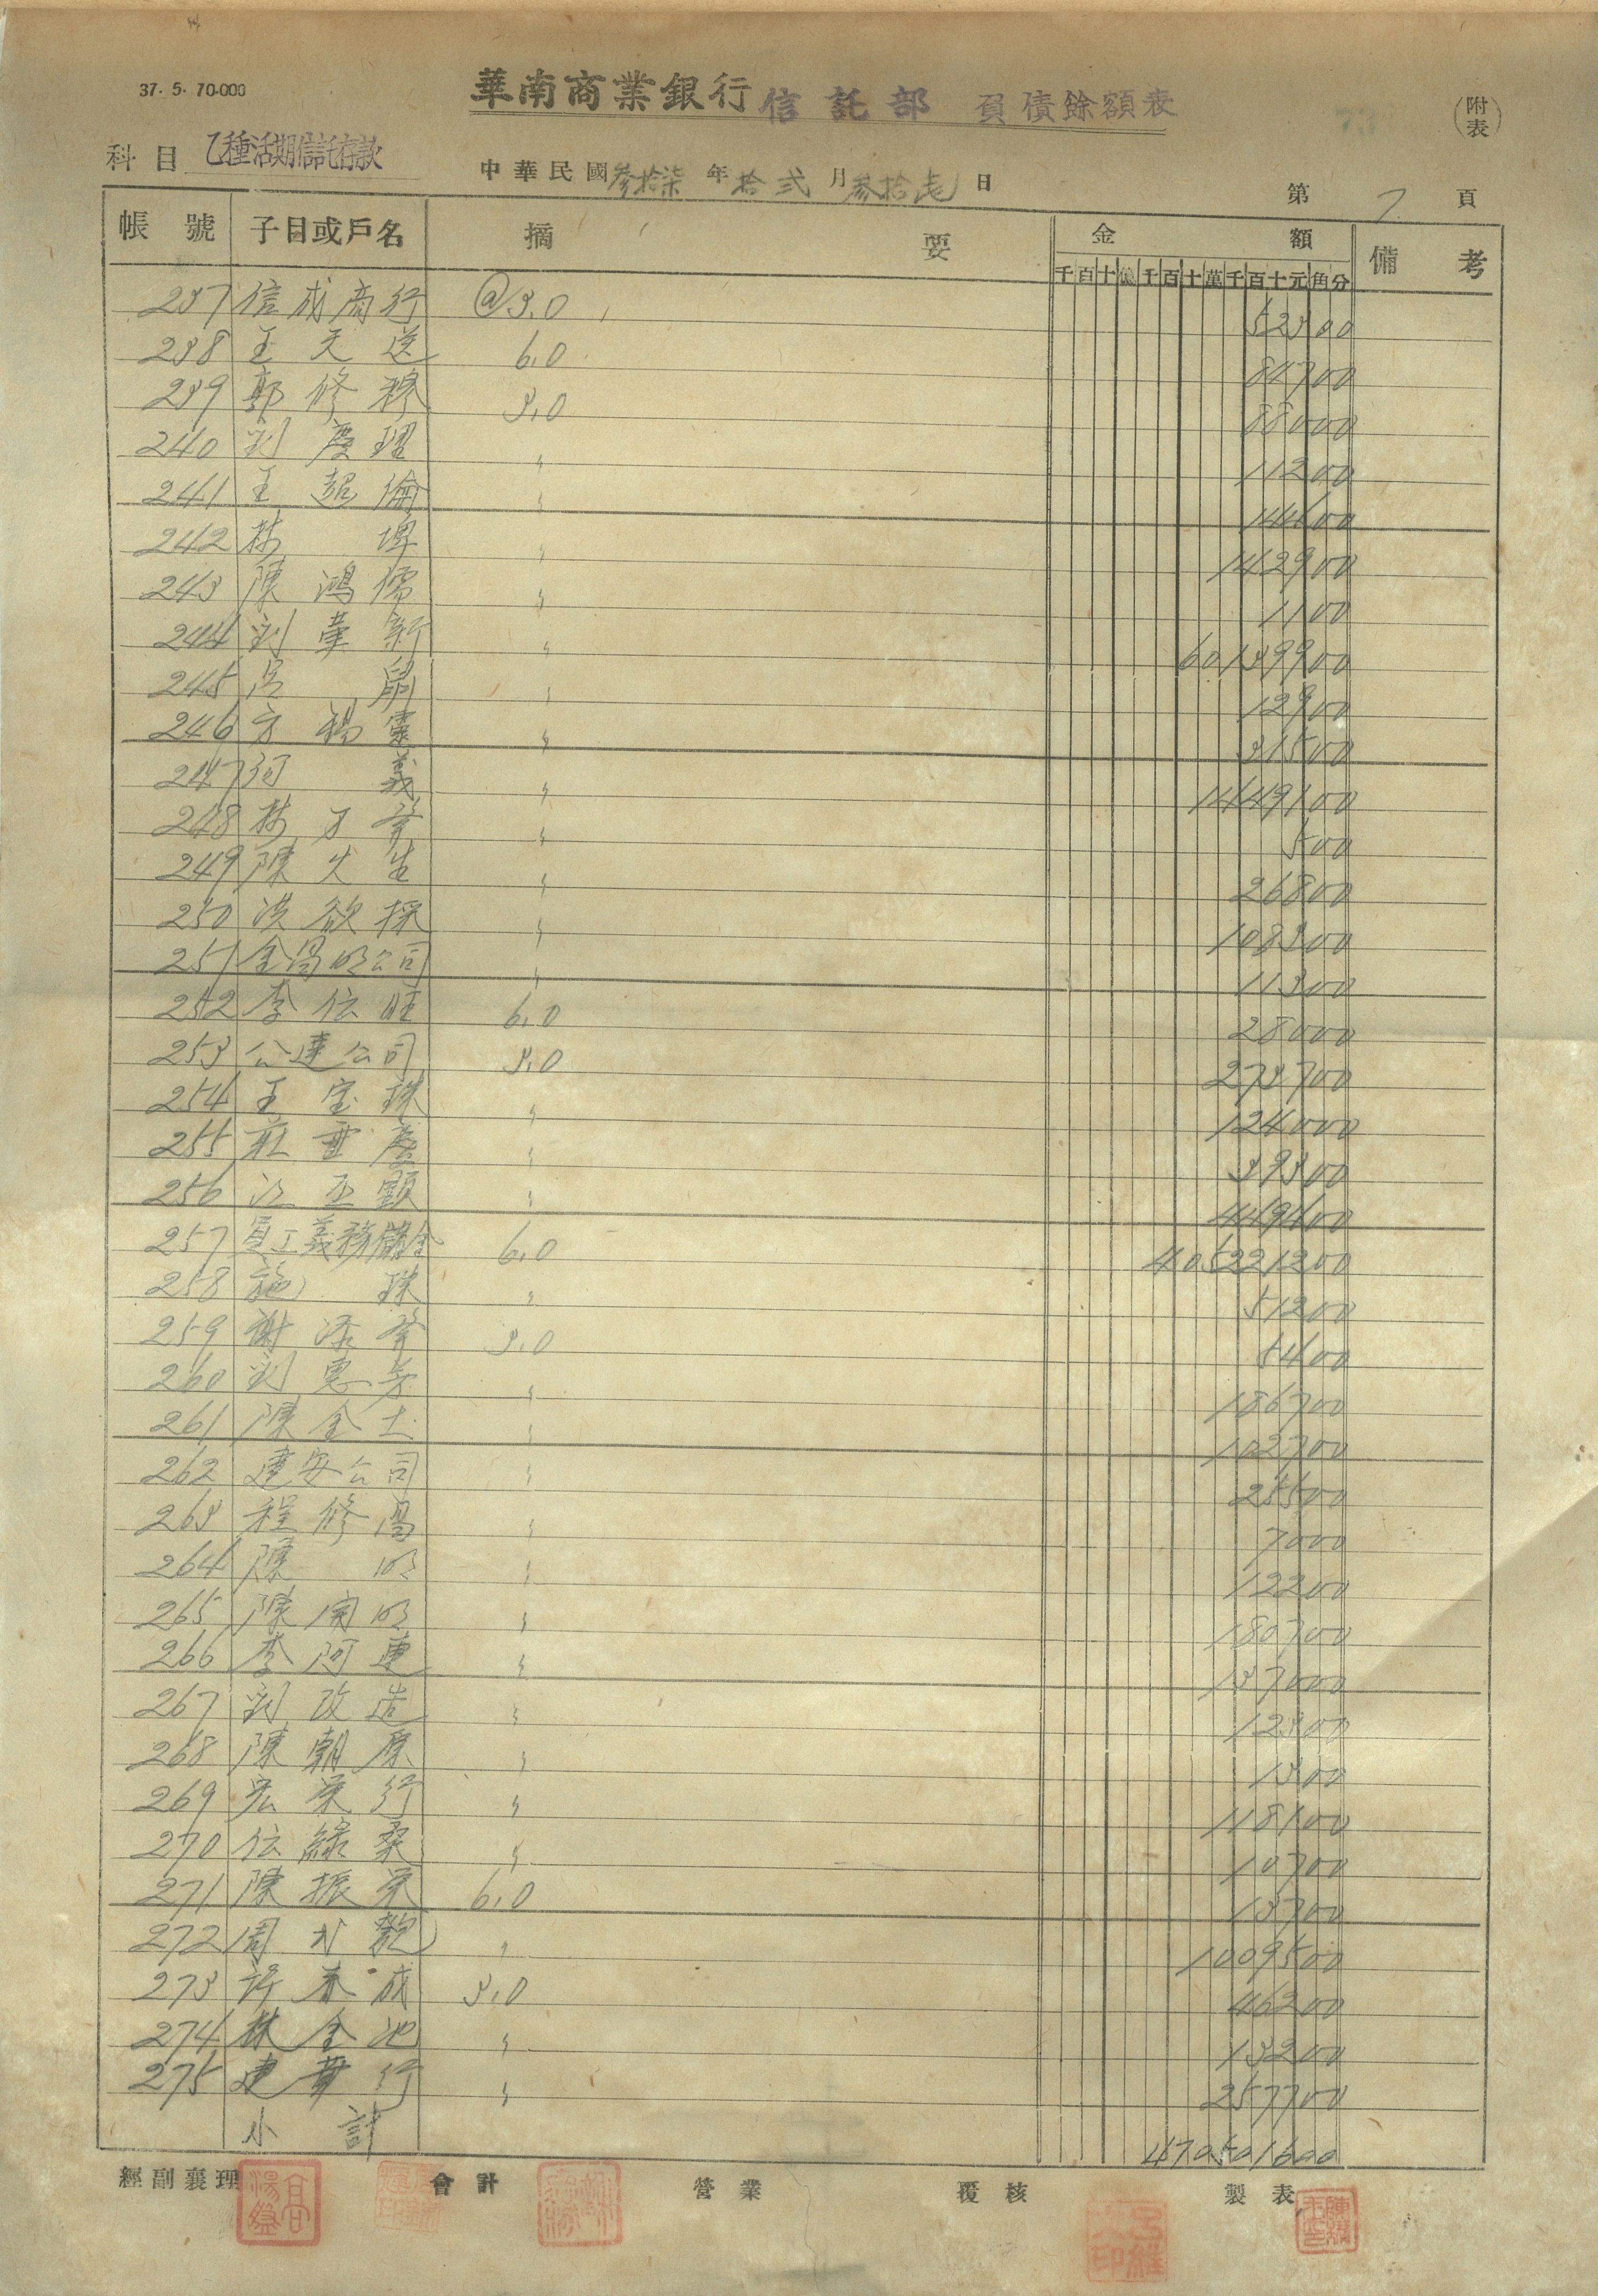 37. 5. 70.000
華南商業銀行 信託部 負債餘額表
(附表)
科目 乙種活期信託存款
中華民國參拾柒年拾弍月參拾壱日
第 7 頁
帳號 子目或戶名 摘要 金額 備考
千百十億千百十萬千百十元角分
237 信成商行 @3.0 52300
238 王天送 6.0 84700
239 郭修穆 3.0 88000
240 劉慶理 〃 11200
241 王超倫 〃 14600
242 林埤 〃 142900
243 陳鴻儒 〃 1100
244 劉華新 〃 60139900
245 呂 〃 12900
246 方楊靈 〃 31500
247 何義 〃 14449100
248 林才 〃 500
249 陳火生 〃 26800
250 洪欲採 〃 108300
251 金昌明公司 〃 11300
252 李伝旺 6.0 28000
253 公達公司 3.0 273700
254 王宝珠 〃 124000
255 莊垂慶 〃 39300
256 江亚顕 〃 449400
257 員工義務儲金 6.0 405221200
258 施珠 〃 51200
259 謝添 3.0 5400
260 劉惠芳 〃 186700
261 陳金土 〃 102700
262 建安公司 〃 25500
263 程修昌 〃 7000
264 陳明 〃 12200
265 陳開明 〃 180700
266 李阿東 〃 137000
267 劉改造 〃 12300
268 陳朝原 〃 1300
269 宏栄行 〃 118100
270 伝綠桑 〃 10700
271 陳振栄 6.0 13700
272 周水 〃 1009500
273 許春成 3.0 46200
274 林金池 〃 13200
275 建華行 〃 257700
小計 470501600
經副襄理 會計 營業 覆核 製表